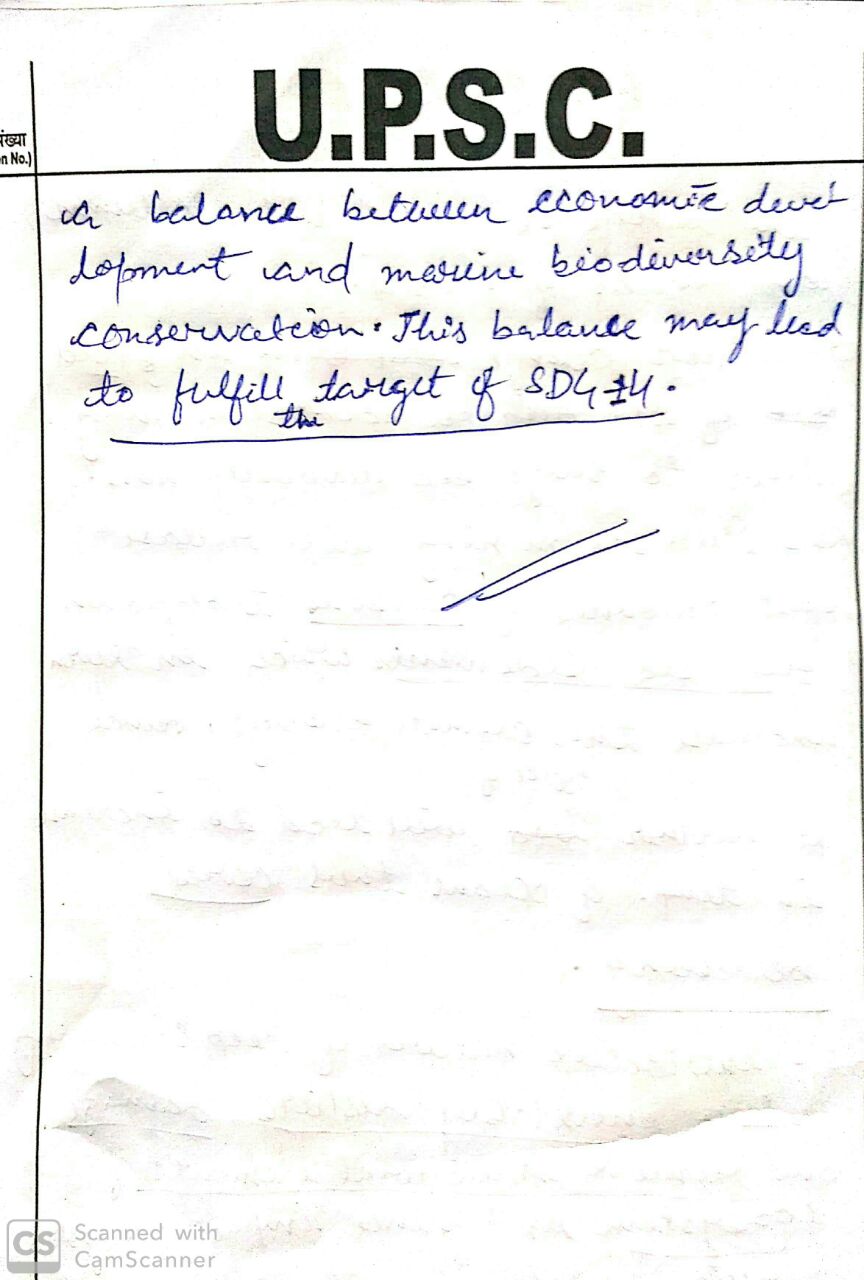 U.P.S.C.
a balance between economic devel
lopment and marine biodiversity
conservation. This balance may lead
to fulfill the target of SDG 14.
CS Scanned with
CamScanner